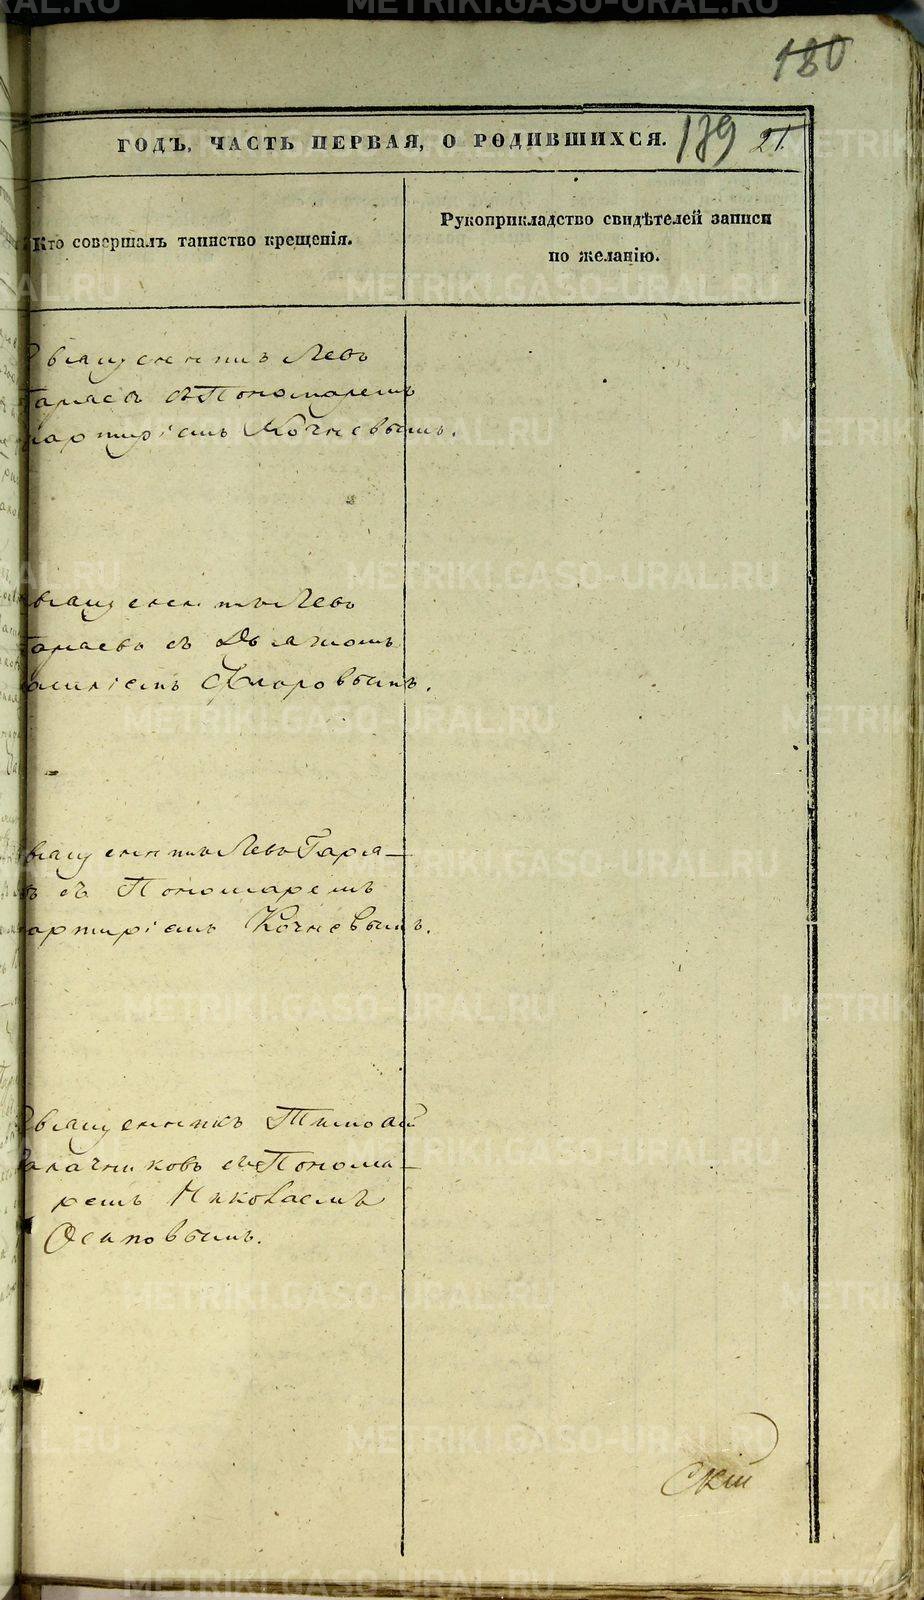 180
ГОДЪ, ЧАСТЬ ПЕРВАЯ, О РОДИВШИХСЯ. 139 21.
Кто совершалъ таинство крещенія.
Рукоприкладство свидѣтелей записи
по желанію.
Священникъ Левъ
съ Пономаремъ
Мартиріемъ Кочневымъ.
Священникъ Левъ
съ Дьякономъ
Флоровымъ.
Священникъ Левъ
въ съ Пономаремъ
Мартиріемъ Кочневымъ.
Священникъ Тимофей
Калачниковъ съ Понома-
ремъ Николаемъ
Осиповымъ.
Скій
METRIKI.GASO-URAL.RU